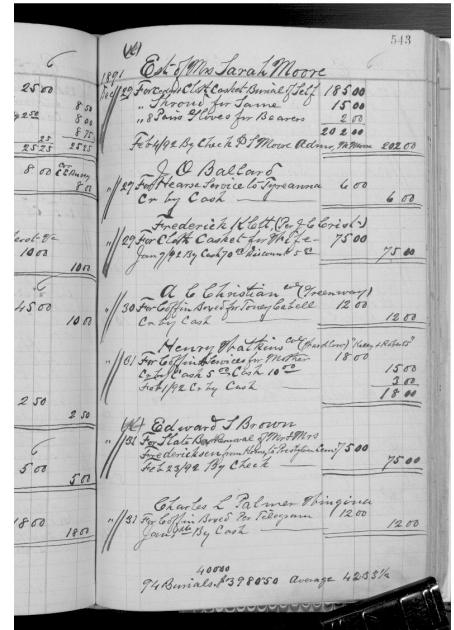 543
25 00
8 50
9 2 50
8 00
8 75
25
25 25
25 25
8 00
8 00
10 00
10 00
45 00
10 00
2 50
2 50
5 00
5 00
18 00
18 00
1891
Est of Mrs Sarah Moore
Dec 29 For Cloth Casket Burial of Self 185 00
" Shroud for Same 15 00
" 8 Pairs Gloves for Bearers 2 00
202 00
Feb 4/92 By Check Moore Admr 202 00
J O Ballard
" 29 For Hearse Service to Tyreanna 6 00
Cr by Cash 6 00
Frederick Klett (Per J C Crist)
" 29 For Cloth Casket for Wife 75 00
Jan 9/92 By Cash 70 00 Discount 5 00 75 00
A C Christian col (Greenway)
" 30 For Coffin Boxed for Toney Cabell 12 00
Cr by Cash 12 00
Henry Watkins col
" 31 For Coffin & Services for Mother 18 00
Cr by Cash 5 00 Cash 10 00 15 00
Feb 1/92 Cr by Cash 3 00
18 00
Edward S Brown
" 31 For Slate Box Removal of Mr & Mrs
Fredericksen from Home to Presbyterian Cem 75 00
Feb 23/92 By Check 75 00
Charles L Palmer Wingina
" 31 For Coffin Boxed Per Telegram 12 00
Jan By Cash 12 00
4000 00
94 Burials. $3980 50 Average 42 33½